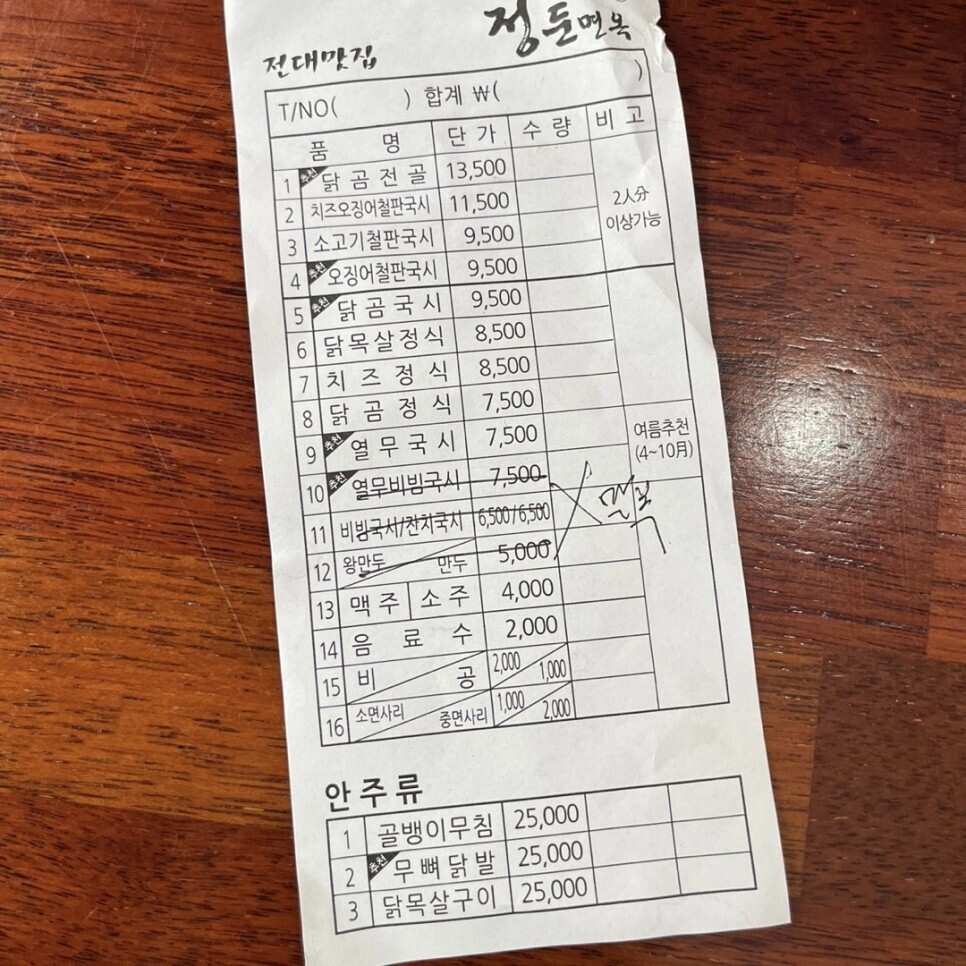 전대맛집 정든면옥
T/NO( ) 합계 ₩( )
품 명 단 가 수 량 비 고
1 추천 닭곰전골 13,500
2 치즈오징어철판국시 11,500 2人分
3 소고기철판국시 9,500 이상가능
4 추천 오징어철판국시 9,500
5 추천 닭곰국시 9,500
6 닭목살정식 8,500
7 치즈정식 8,500
8 닭곰정식 7,500
9 추천 열무국시 7,500 여름추천
10 추천 열무비빔국시 7,500 (4~10月)
11 비빔국시/잔치국시 6,500/6,500
12 왕만두 만두 5,000
13 맥주 소주 4,000
14 음료수 2,000
15 비 공 2,000 1,000
16 소면사리 중면사리 1,000 2,000
안주류
1 골뱅이무침 25,000
2 추천 무뼈닭발 25,000
3 닭목살구이 25,000